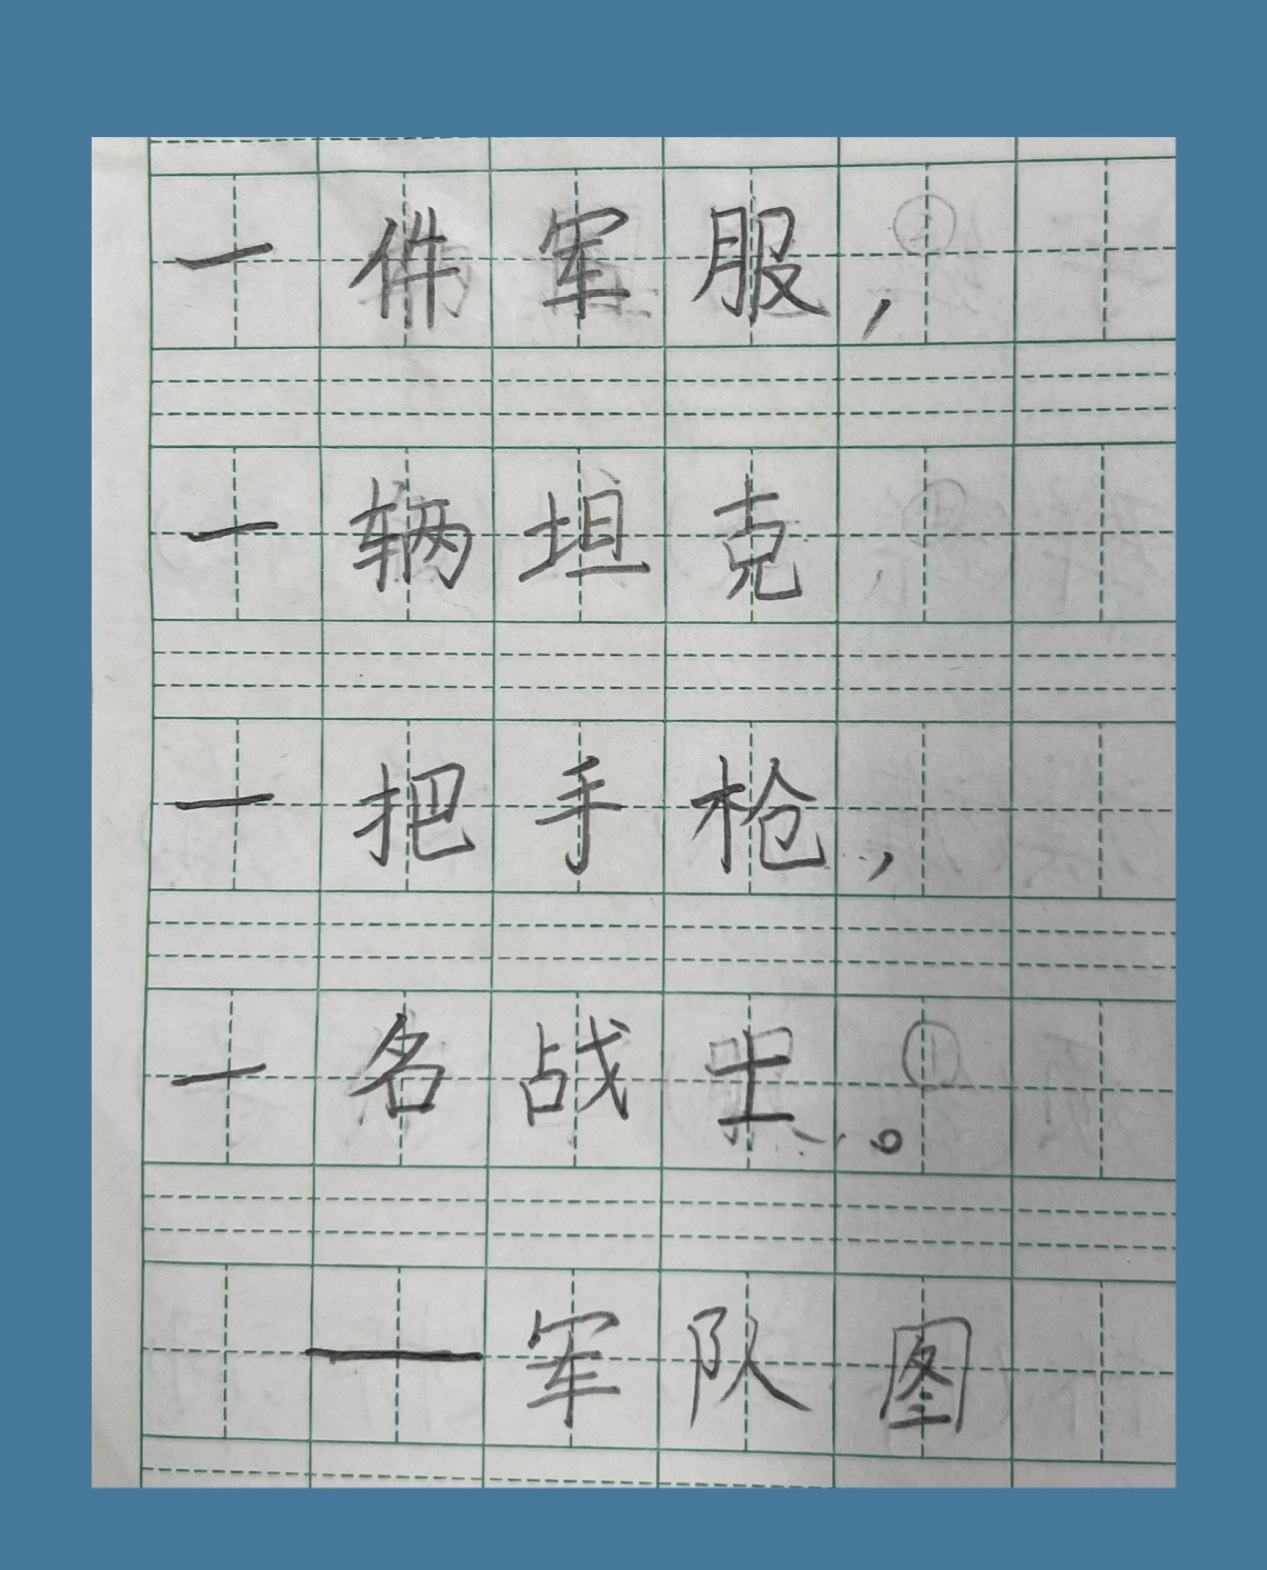 一件军服，
一辆坦克
一把手枪，
一名战士。
—军队图